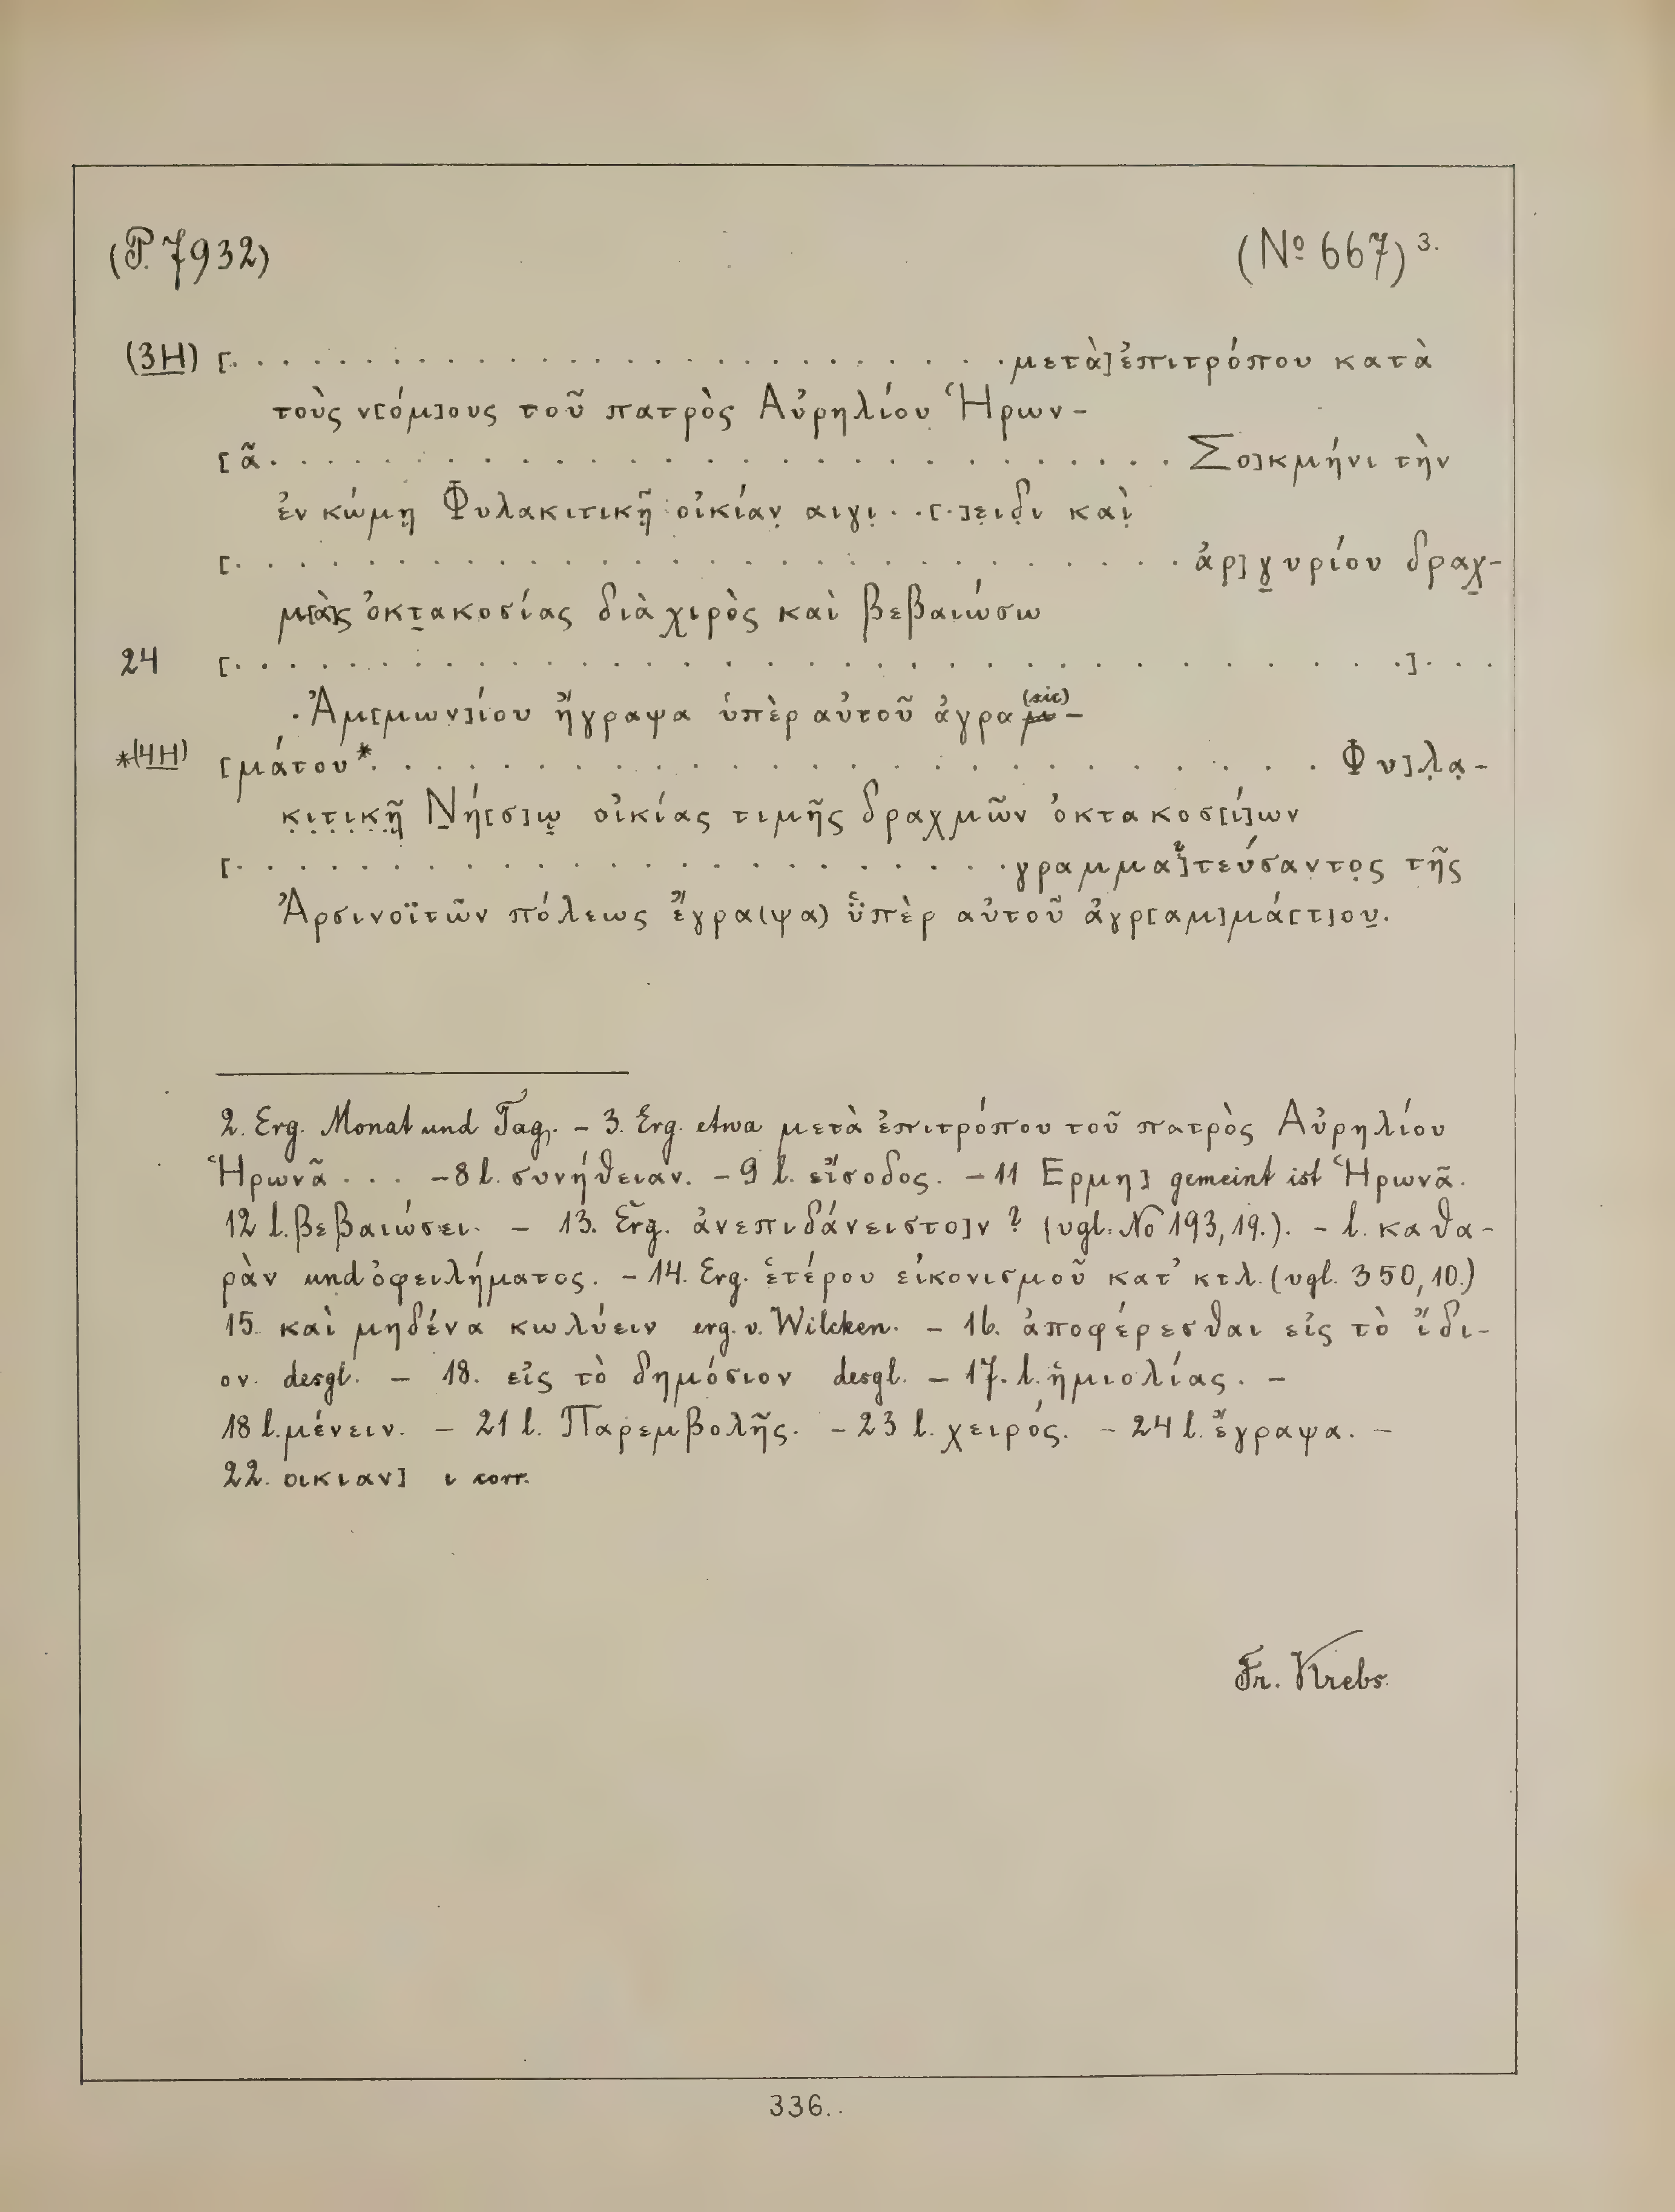 (P. 7932) (Nº 667) 3.
(3H) [. . . . . . . . . . . . . . . . . . . . . . . . . . . . . μετὰ] ἐπιτρόπου κατὰ
τοὺς ν[όμ]ους τοῦ πατρὸς Αὐρηλίου Ἡρων-
[ᾶ. . . . . . . . . . . . . . . . . . . . . . . . . . . . . Σο]κμήνι τὴν
ἐν κώμῃ Φυλακιτικῇ οἰκίαν̣ αιγι̣ . . [.]ε̣ιδ̣ι καὶ̣
[. . . . . . . . . . . . . . . . . . . . . . . . . . . . . ἀρ]γ̣υρίου δραχ̣-
μ[ὰ]ς ὀκτ̣ακοσίας διὰ χιρὸς καὶ βεβαιώσω
24 [. . . . . . . . . . . . . . . . . . . . . . . . . . . . . . . . .] . . .
. Ἀμ[μων]ίου ἤγραψα ὑπὲρ αὐτοῦ ἀγραμ(sic)-
*(4H) [μάτου* . . . . . . . . . . . . . . . . . . . . . . . . . Φυ]λ̣α̣-
κ̣ι̣τ̣ι̣κ̣ῇ̣ Ν̣ή[σ]ῳ̣ οἰκίας τιμῆς δραχμῶν ὀκτακοσ[ί]ων
[. . . . . . . . . . . . . . . . . . . . . . . . . γραμμα?]τεύσαντο̣ς τῆς
Ἀρσινοϊτῶν πόλεως ἔγρα(ψα) ὑ̈πὲρ αὐτοῦ ἀγρ[αμ]μά[τ]ου̣.
2. Erg. Monat und Tag. – 3. Erg. etwa μετὰ ἐπιτρόπου τοῦ πατρὸς Αὐρηλίου
Ἡρωνᾶ . . . – 8 l. συνήθειαν. – 9 l. εἴσοδος. – 11 Ερμη] gemeint ist Ἡρωνᾶ.
12 l. βεβαιώσει. – 13. Erg. ἀνεπιδάνειστο]ν ? (vgl. No 193, 19.). – l. καθα-
ρὰν und ὀφειλήματος. – 14. Erg. ἑτέρου εἰκονισμοῦ κατ' κτλ. (vgl. 350, 10.)
15. καὶ μηδένα κωλύειν erg. v. Wilcken. – 16. ἀποφέρεσθαι εἰς τὸ ἴδι-
ον. desgl. – 18. εἰς τὸ δημόσιον desgl. – 17. l. ἡμιολίας. –
18 l. μένειν. – 21 l. Παρεμβολῆς. – 23 l. χειρός. – 24 l. ἔγραψα. –
22. οικιαν] ι corr.
Fr. Krebs.
336.